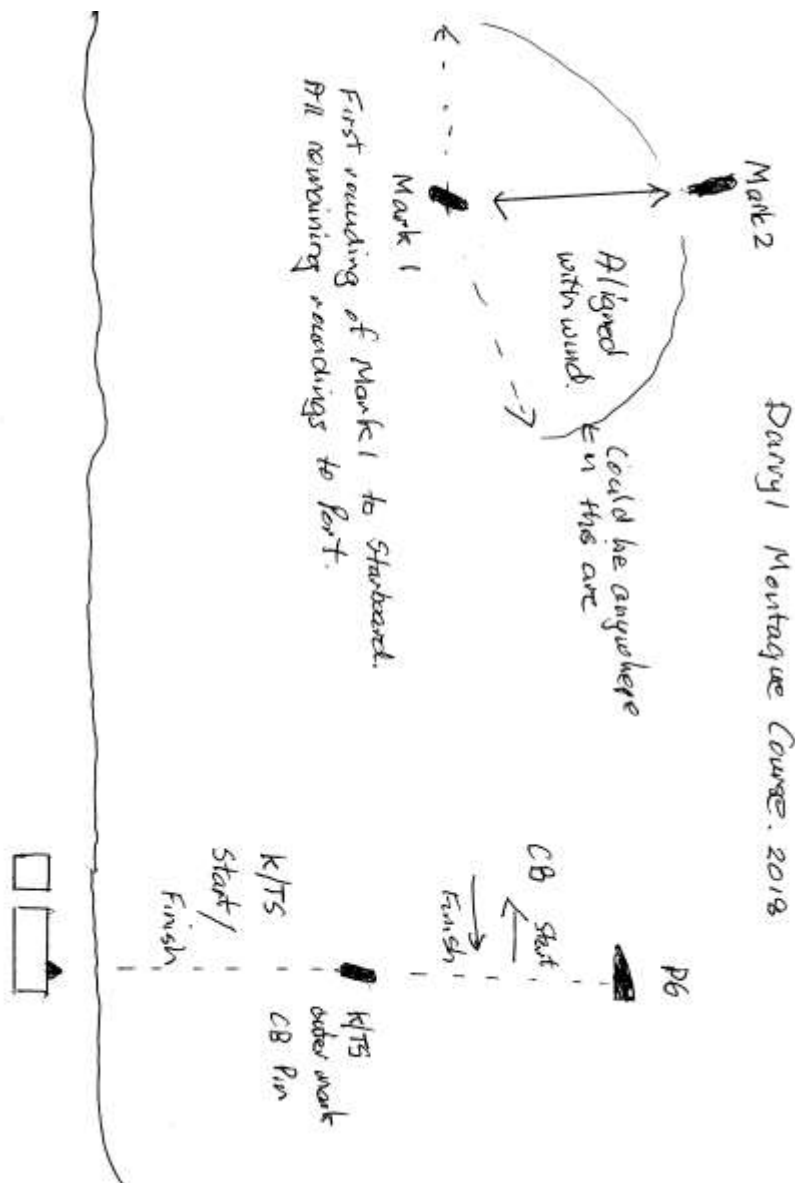 Darryl Montague Course. 2018
Mark 2
Aligned
with wind.
Could be anywhere
in this arc
CB
Start
Finish
Mark 1
First rounding of Mark 1 to Starboard.
All remaining roundings to Port.
K/TS
Start/
Finish
K/TS
outer mark
CB Pin